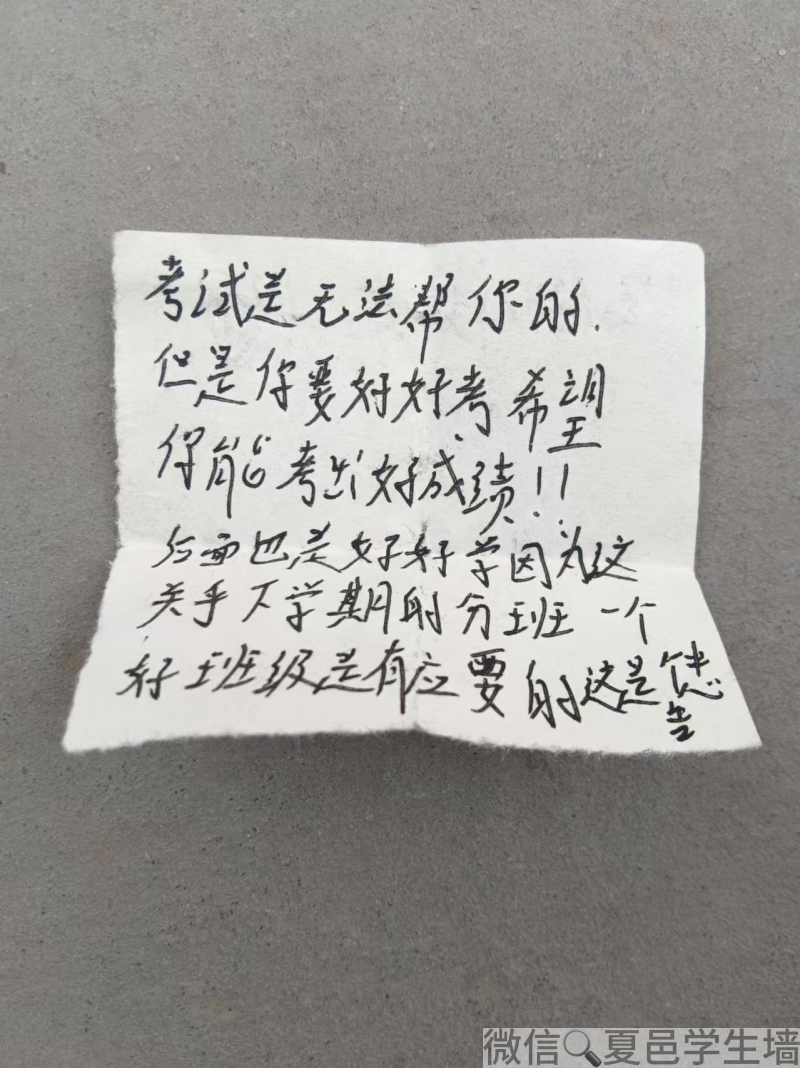 考试是无法帮你的.
但是你要好好考 希望
你能考出好成绩!!
后面也是好好学因为这
关乎下学期的分班 一个
好班级是有必要的这是忠
告
微信🔍夏邑学生墙